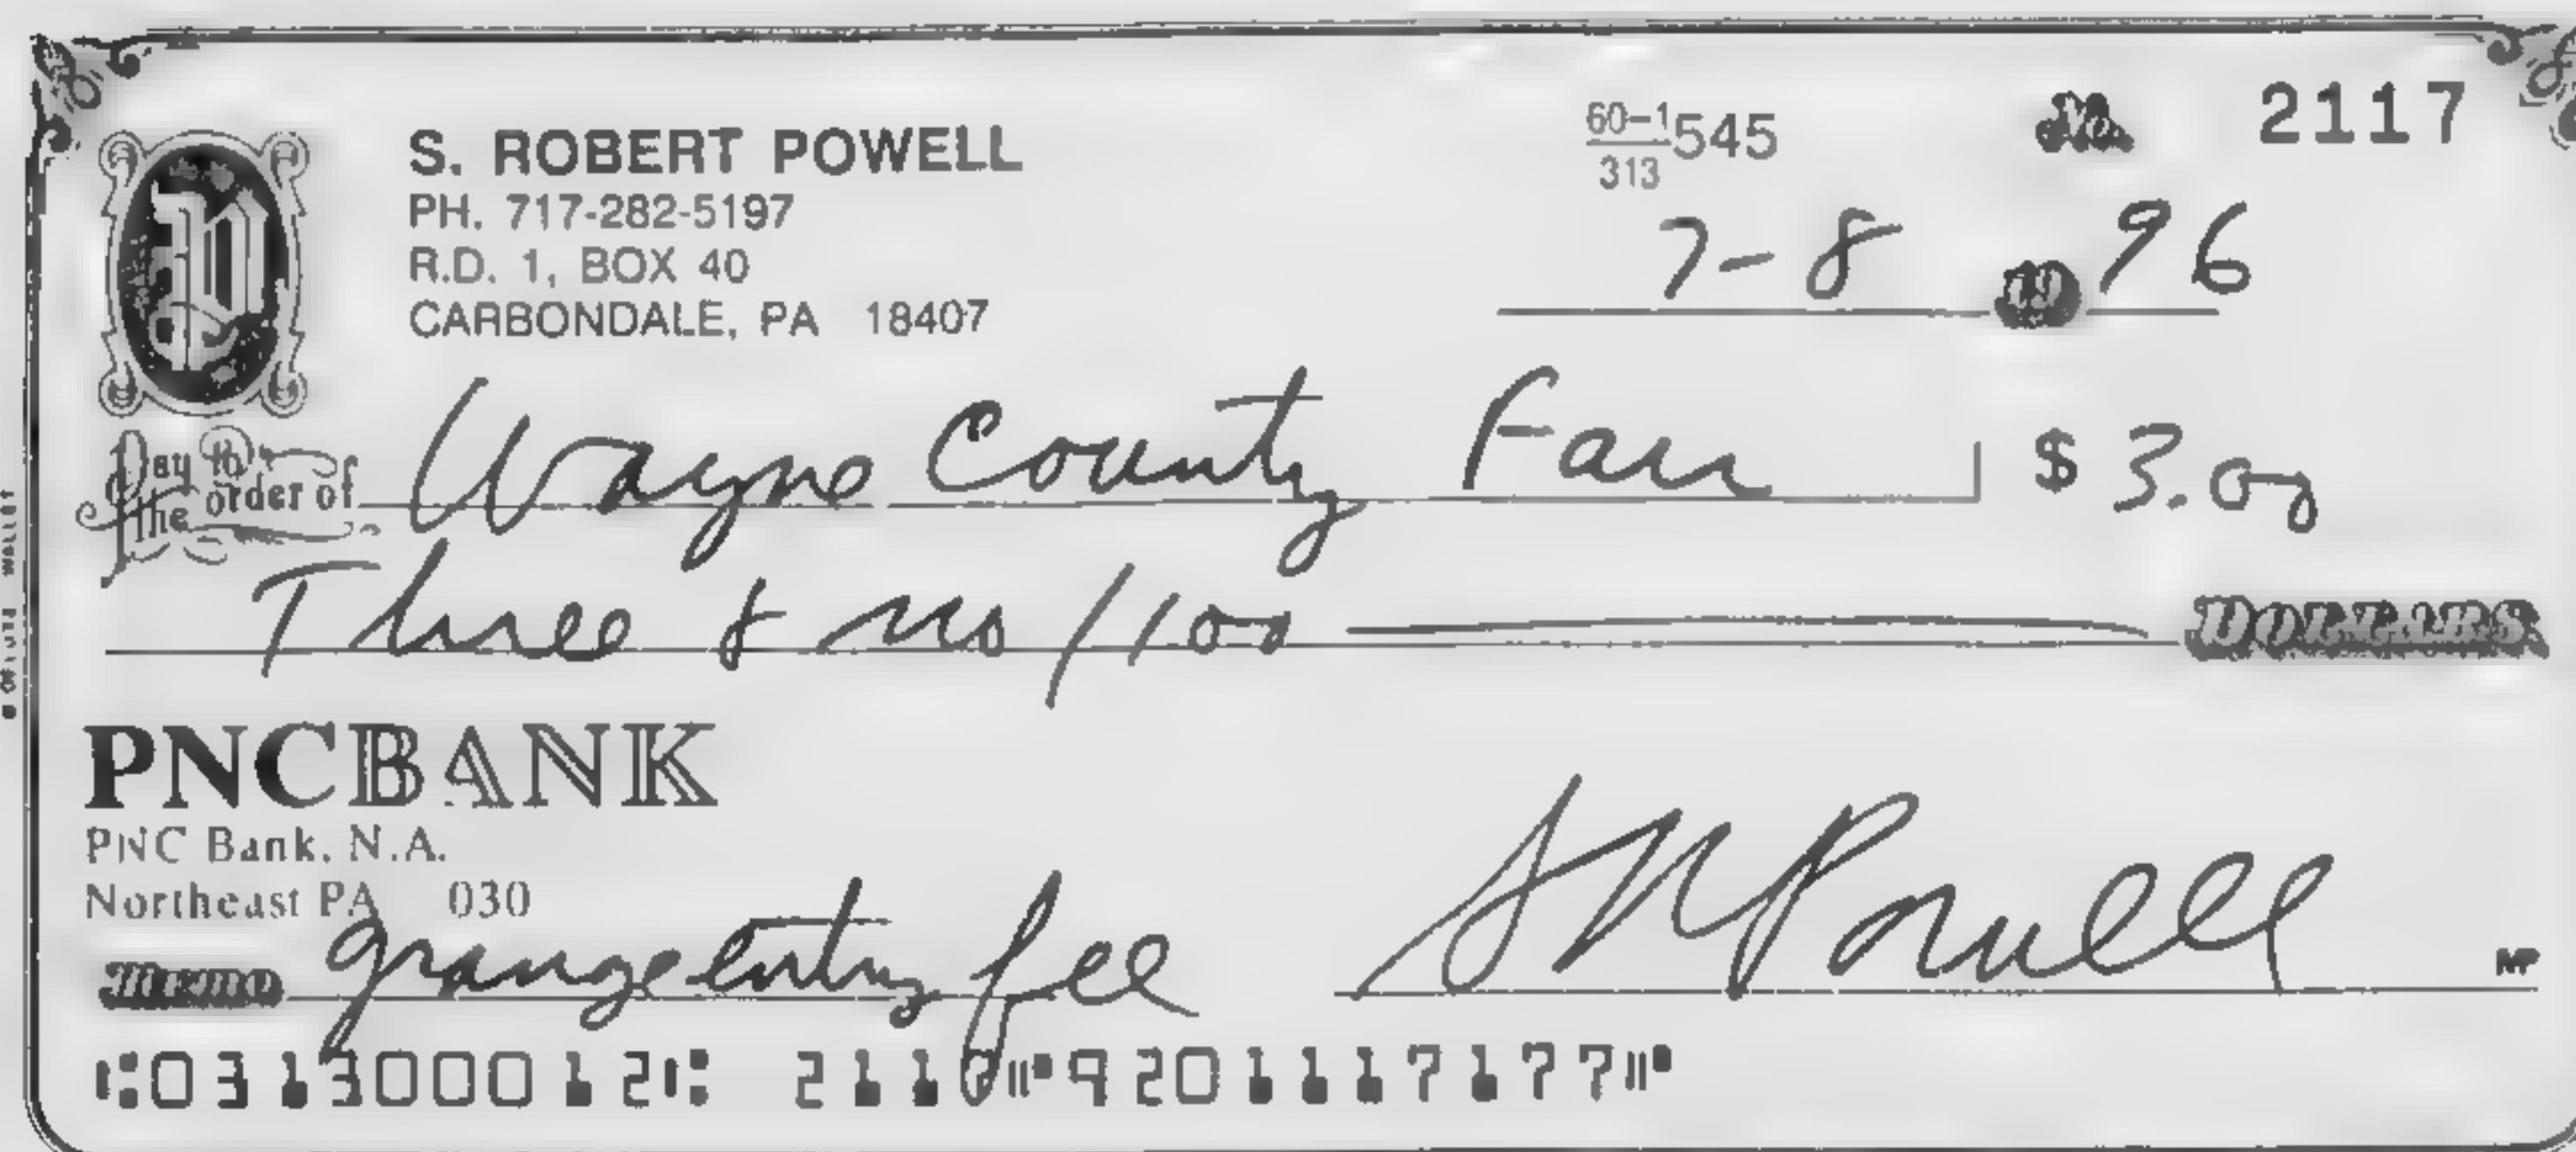 S. ROBERT POWELL
PH. 717-282-5197
R.D. 1, BOX 40
CARBONDALE, PA 18407
60-1/313 545
No. 2117
7-8 19 96
Pay to the order of Wayne County Fair $ 3.00
Three & no/100 DOLLARS
PNCBANK
PNC Bank, N.A.
Northeast PA 030
Memo grange entry fee
S R Powell
MP
⑆031300012⑆ 2117⑈9201117177⑈